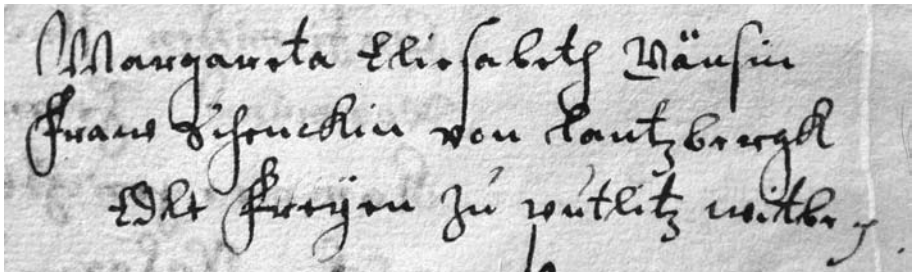 Margareta Eliesabeth Gänsin
Fraw Schenckin von Lantzbergk
Edle Freÿen zu putlitz witbe